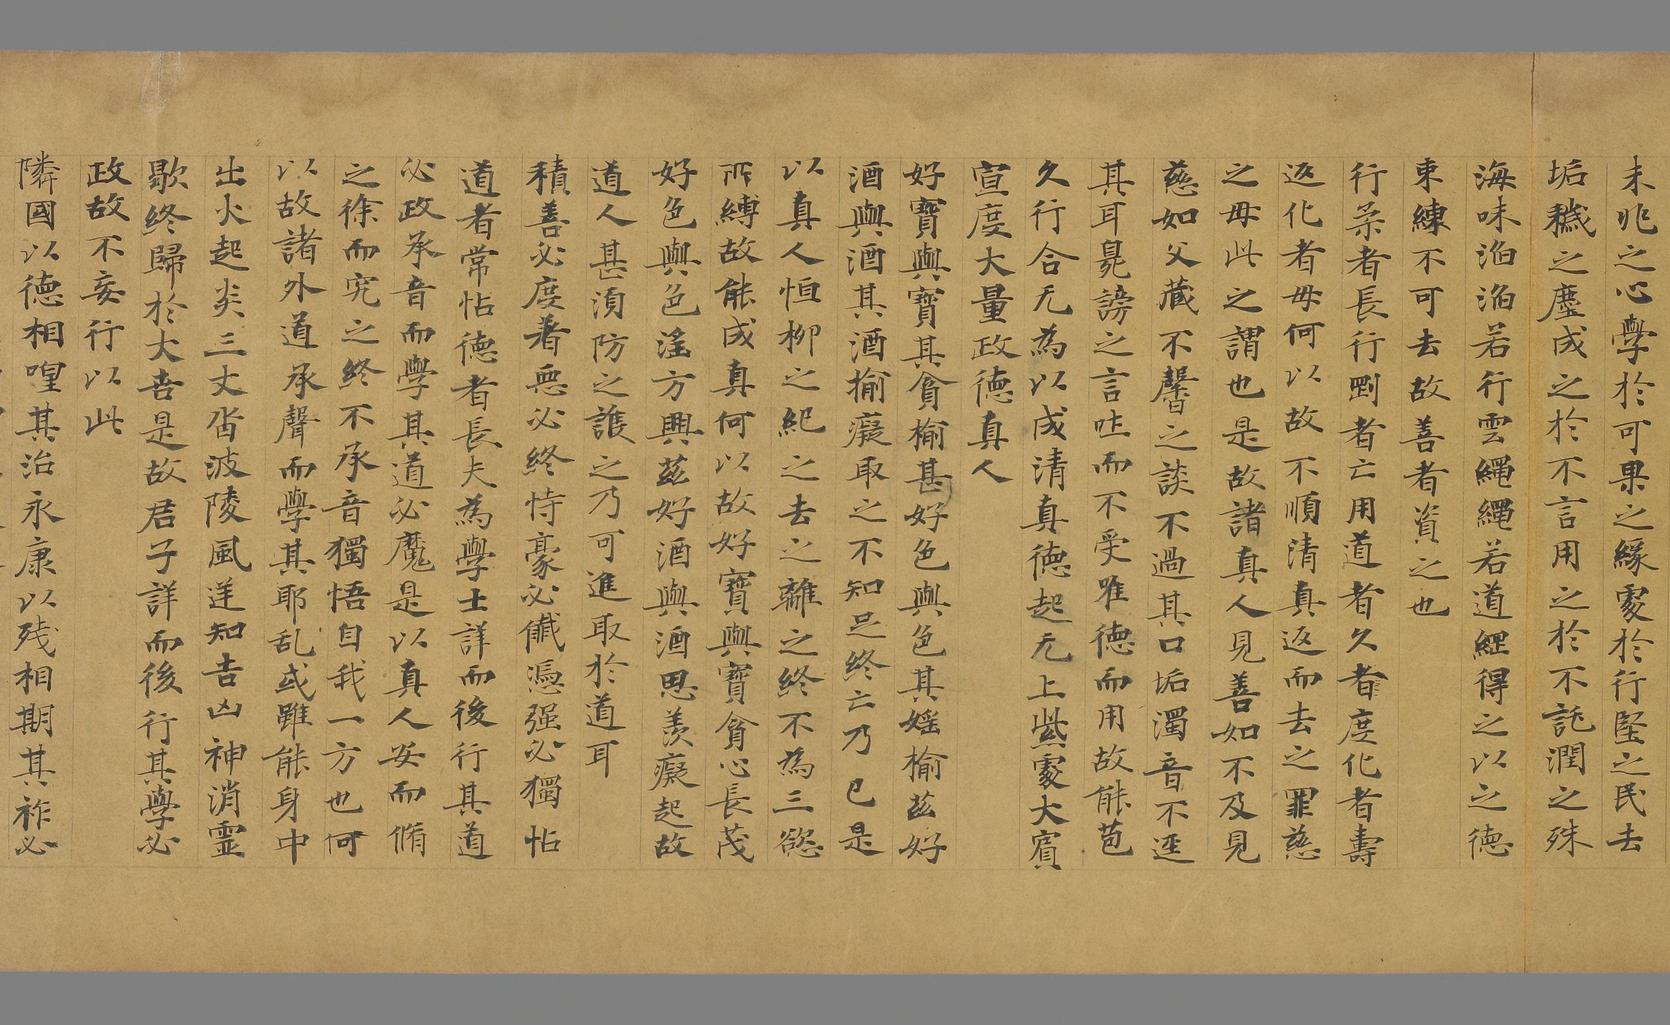 未兆之心學於可果之緣處於行堅之民去
垢穢之塵成之於不言用之於不託潤之殊
海味滔滔若行雲繩繩若道經得之以之德
東練不可去故善者資之也
行柔者長行剛者亡用道者久者度化者壽
返化者毋何以故不順清真返而去之罪慈
之毋此之謂也是故諸真人見善如不及見
慈如父藏不馨之談不過其口垢濁音不逕
其耳毳謗之言呿而不受唯德而用故能苞
久行合无為以成清真德起元上紫處大賓
宣度大量政德真人
好寶與寶其貪揄甚好色與色其婬揄茲好
酒與酒其酒揄癡取之不知足終亡乃已是
以真人恒柳之紀之去之離之終不為三慾
所縛故能成真何以故好寶與寶貪心長茂
好色與色滛方興茲好酒與酒思羨癡起故
道人甚湏防之護之乃可進取於道耳
積善必度著惡必終恃豪必儎憑强必獨怗
道者常怗德者長夫為學士詳而後行其道
必政承音而學其道必魔是以真人安而脩
之徐而究之終不承音獨悟自我一方也何
以故諸外道承聲而學其耶乱或雖能身中
出火起炎三丈沓波陵風逆知吉凶神消靈
歇終歸於大咎是故君子詳而後行其學必
政故不妄行以此
隣國以德相喤其治永康以残相期其祚必